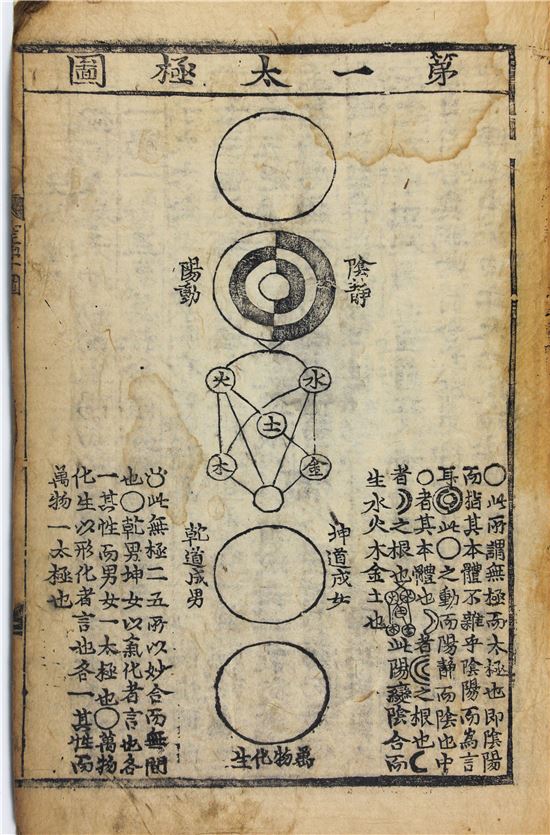 第一太極圖
陰靜
陽動
水
火
土
金
木
坤道成女
乾道成男
萬物化生
○此所謂無極而太極也即陰陽
而指其本體不雜乎陰陽而爲言
耳◎此○之動而陽靜而陰也中
○者其本體也☽者☾之根也☾
者☽之根也此陽變陰合而
生水火木金土也
此無極二五所以妙合而無間
也○乾男坤女以氣化者言也各
一其性而男女一太極也○萬物
化生以形化者言也各一其性而
萬物一太極也